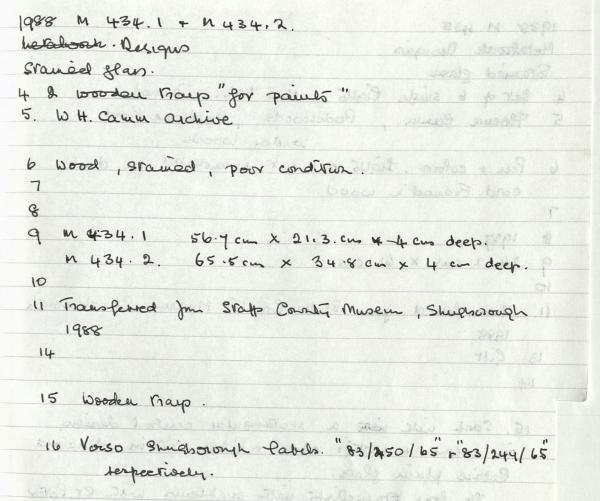 1988 M 434.1 + M 434.2.
Metalwork. Designs
Stained glass.
4 2 wooden trays "for paints"
5. W H. Camm Archive
6 Wood, stained, poor condition.
7
8
9 M 434.1 56.7 cm x 21.3. cm x 4 cms deep.
M 434.2. 65.5 cm x 34.8 cm x 4 cm deep.
10
11 Transferred from Staffs County Museum, Shugborough
1988
14
15 Wooden trays.
16 Verso Shugborough labels. "83/250/65" + "83/249/65"
respectively.